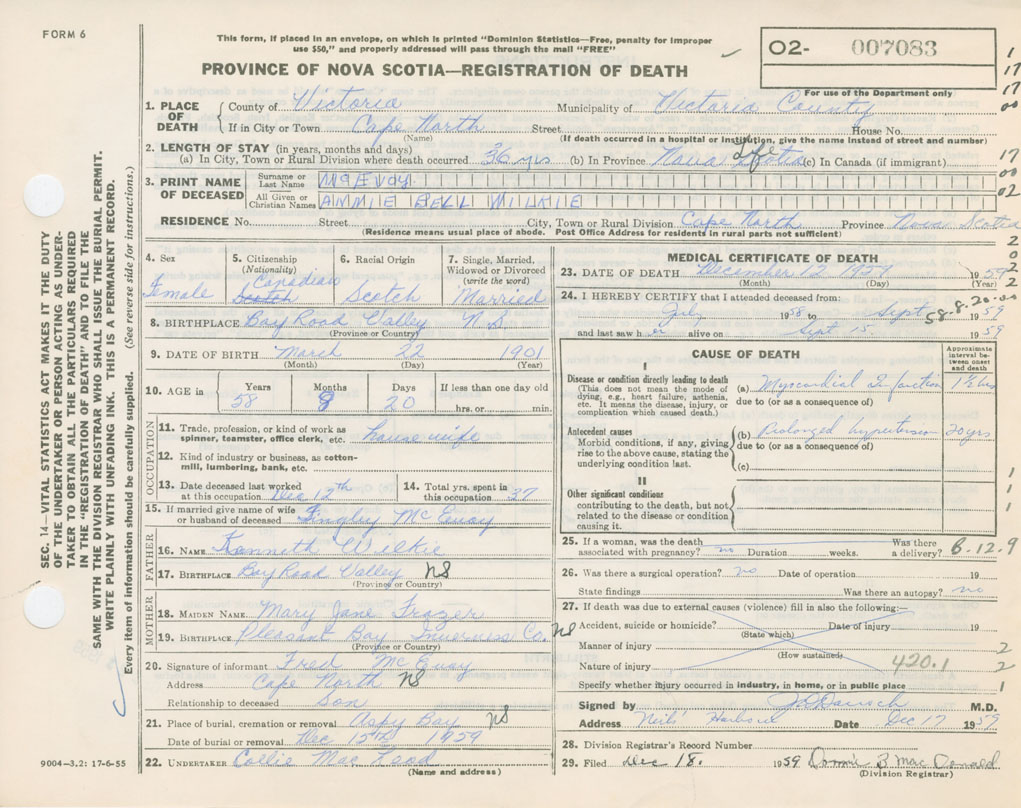 FORM 6
This form, if placed in an envelope, on which is printed "Dominion Statistics—Free, penalty for improper
use $50," and properly addressed will pass through the mail "FREE"
PROVINCE OF NOVA SCOTIA—REGISTRATION OF DEATH
O2- 007083
For use of the Department only
1. PLACE OF DEATH County of Victoria Municipality of Victoria County
If in City or Town Cape North Street House No.
(Name) (If death occurred in a hospital or institution, give the name instead of street and number)
2. LENGTH OF STAY (in years, months and days)
(a) In City, Town or Rural Division where death occurred 36 yrs (b) In Province Nova Scotia Life (c) In Canada (if immigrant)
3. PRINT NAME OF DECEASED Surname or Last Name McEVOY
All Given or Christian Names AMMIE BELL WILKIE
RESIDENCE No. Street City, Town or Rural Division Cape North Province Nova Scotia
(Residence means usual place of abode. Post Office Address for residents in rural parts not sufficient)
4. Sex Female
5. Citizenship (Nationality) Canadian Scotch
6. Racial Origin Scotch
7. Single, Married, Widowed or Divorced (write the word) Married
8. BIRTHPLACE Bay Road Valley N S
(Province or Country)
9. DATE OF BIRTH March 22 1901
(Month) (Day) (Year)
10. AGE in Years 58 Months 8 Days 20 If less than one day old hrs. or min.
OCCUPATION
11. Trade, profession, or kind of work as spinner, teamster, office clerk, etc. house wife
12. Kind of industry or business, as cotton-mill, lumbering, bank, etc.
13. Date deceased last worked at this occupation Dec 12th
14. Total yrs. spent in this occupation 37
15. If married give name of wife or husband of deceased Fingley McEvoy
FATHER
16. NAME Kenneth Wilkie
17. BIRTHPLACE Bay Road Valley NS
(Province or Country)
MOTHER
18. MAIDEN NAME Mary Jane Frazer
19. BIRTHPLACE Pleasant Bay Inverness Co. NS
(Province or Country)
20. Signature of informant Fred McEvoy
Address Cape North NS
Relationship to deceased Son
21. Place of burial, cremation or removal Aspy Bay NS
Date of burial or removal Dec 15th 1959
22. UNDERTAKER Collie Mac Leod
(Name and address)
9004—3.2: 17-6-55
MEDICAL CERTIFICATE OF DEATH
23. DATE OF DEATH December 12 1959 19 59
(Month) (Day) (Year)
24. I HEREBY CERTIFY that I attended deceased from:
July 19 58 to Sept 19 59
58-8-20-00
and last saw her alive on Sept 15 19 59
CAUSE OF DEATH
Approximate interval between onset and death
I
Disease or condition directly leading to death
(This does not mean the mode of dying, e.g., heart failure, asthenia, etc. It means the disease, injury, or complication which caused death.)
(a) Myocardial Infarction 1½ hrs
due to (or as a consequence of)
Antecedent causes
Morbid conditions, if any, giving rise to the above cause, stating the underlying condition last.
(b) Prolonged hypertension 20 yrs
due to (or as a consequence of)
(c)
II
Other significant conditions
contributing to the death, but not related to the disease or condition causing it.
25. If a woman, was the death associated with pregnancy? no Duration weeks. Was there a delivery? 6-12.9
26. Was there a surgical operation? no Date of operation 19
State findings Was there an autopsy? no
27. If death was due to external causes (violence) fill in also the following:
Accident, suicide or homicide? Date of injury 19
(State which)
Manner of injury
(How sustained)
Nature of injury 420.1
Specify whether injury occurred in industry, in home, or in public place
Signed by M.D.
Address Neils Harbour Date Dec 17 1959
28. Division Registrar's Record Number
29. Filed Dec 18. 1959 Donnie B MacDonald
(Division Registrar)
1
17
17
00
17
00
02
2
0
2
2
1
1
1
2
2
1
SEC. 14—VITAL STATISTICS ACT MAKES IT THE DUTY
OF THE UNDERTAKER OR PERSON ACTING AS UNDER-
TAKER TO OBTAIN ALL THE PARTICULARS REQUIRED
IN THE "REGISTRATION OF DEATH" AND FILE THE
SAME WITH THE DIVISION REGISTRAR WHO SHALL ISSUE THE BURIAL PERMIT.
WRITE PLAINLY WITH UNFADING INK. THIS IS A PERMANENT RECORD.
Every item of information should be carefully supplied. (See reverse side for instructions.)